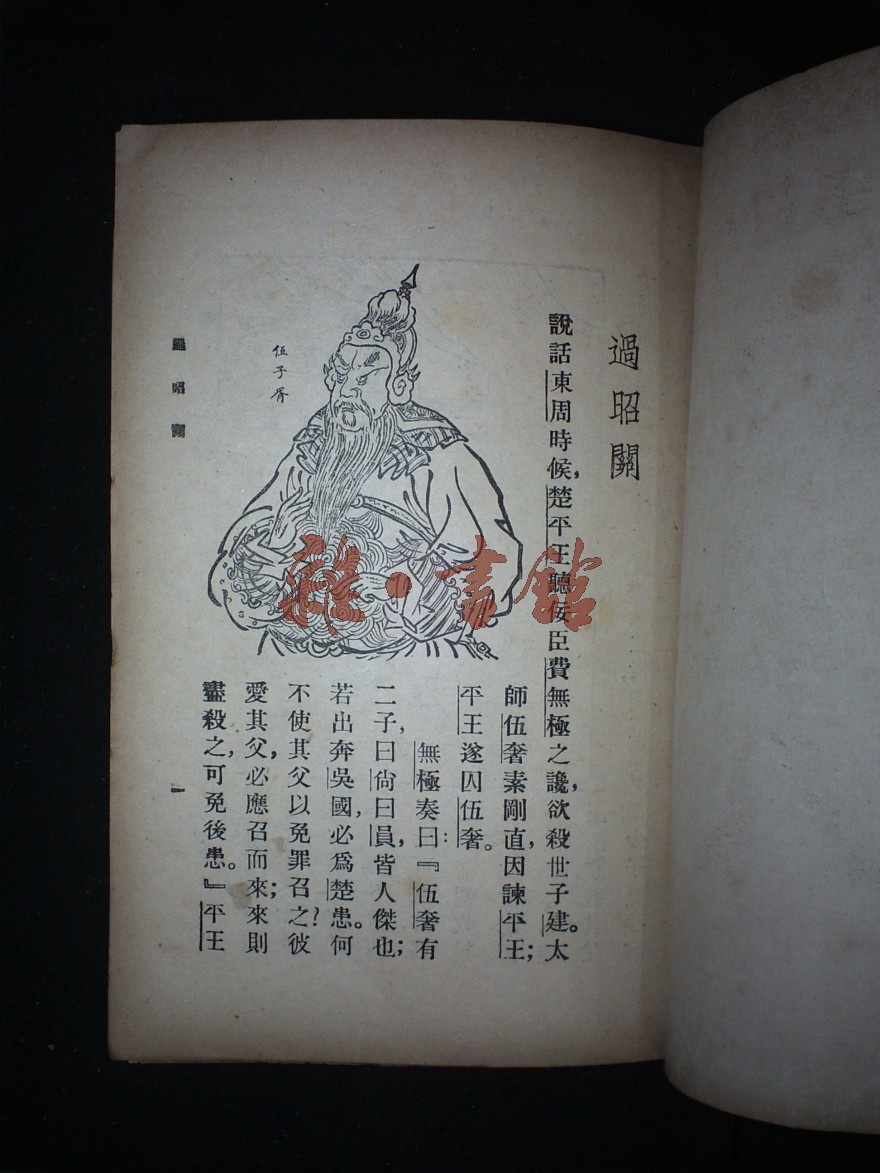 過昭關
說話東周時候，楚平王聽佞臣費無極之讒，欲殺世子建。太
師伍奢素剛直，因諫平王；
平王遂囚伍奢。
無極奏曰：『伍奢有
二子，曰尙曰員，皆人傑也；
若出奔吳國，必爲楚患。何
不使其父以免罪召之？彼
愛其父，必應召而來；來則
盡殺之，可免後患。』平王
伍子胥
過昭關
一
雜·書館